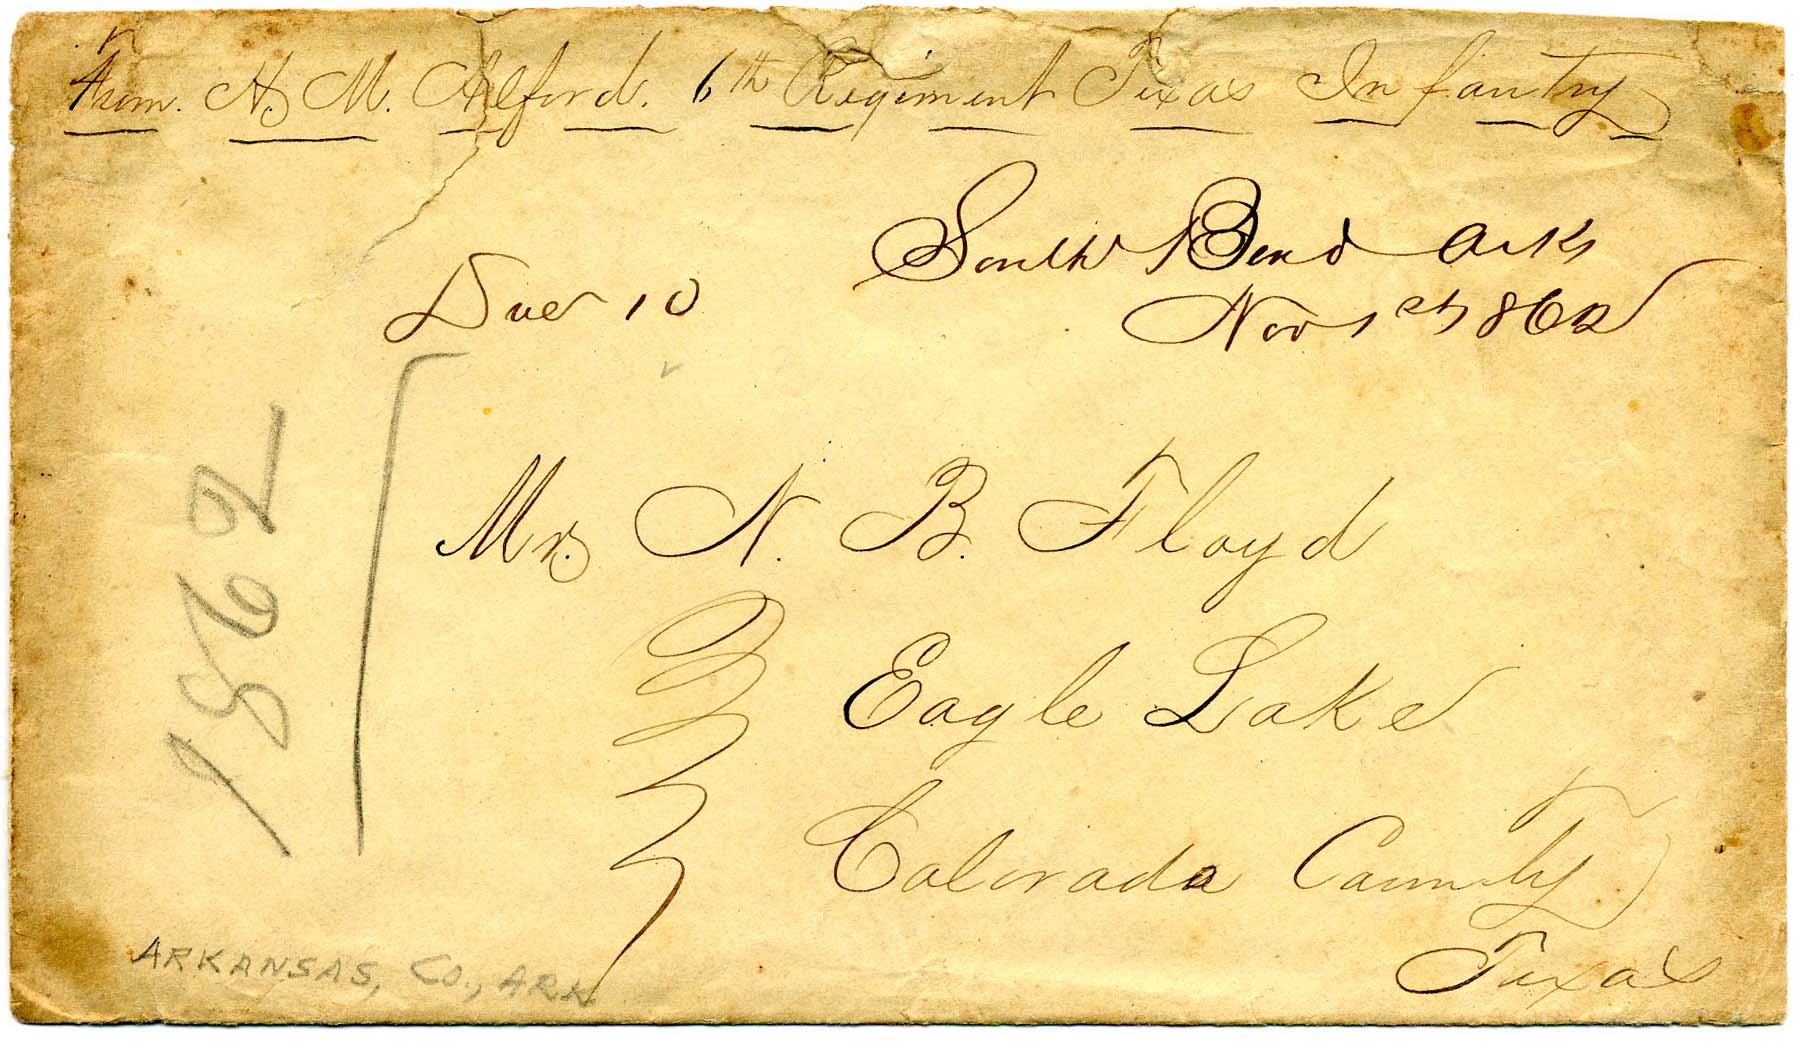 From. H. M. Alford. 6th Regiment Texas Infantry
South Bend Arks
Due 10
Nov 1st 1862
Mr. N. B. Floyd
Eagle Lake
Colorada County
Texas
1862
ARKANSAS, CO., ARK